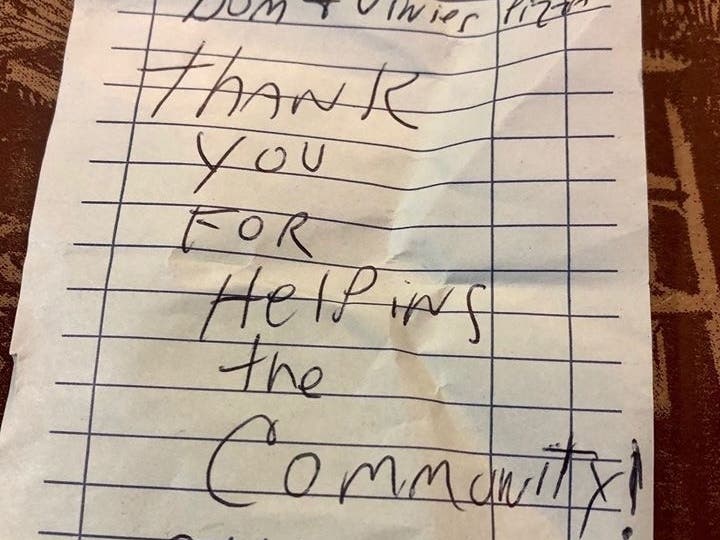 Dom + Vinnies Pizza
THANK
YOU
FOR
HelPiNg
the
CommuNiTy!